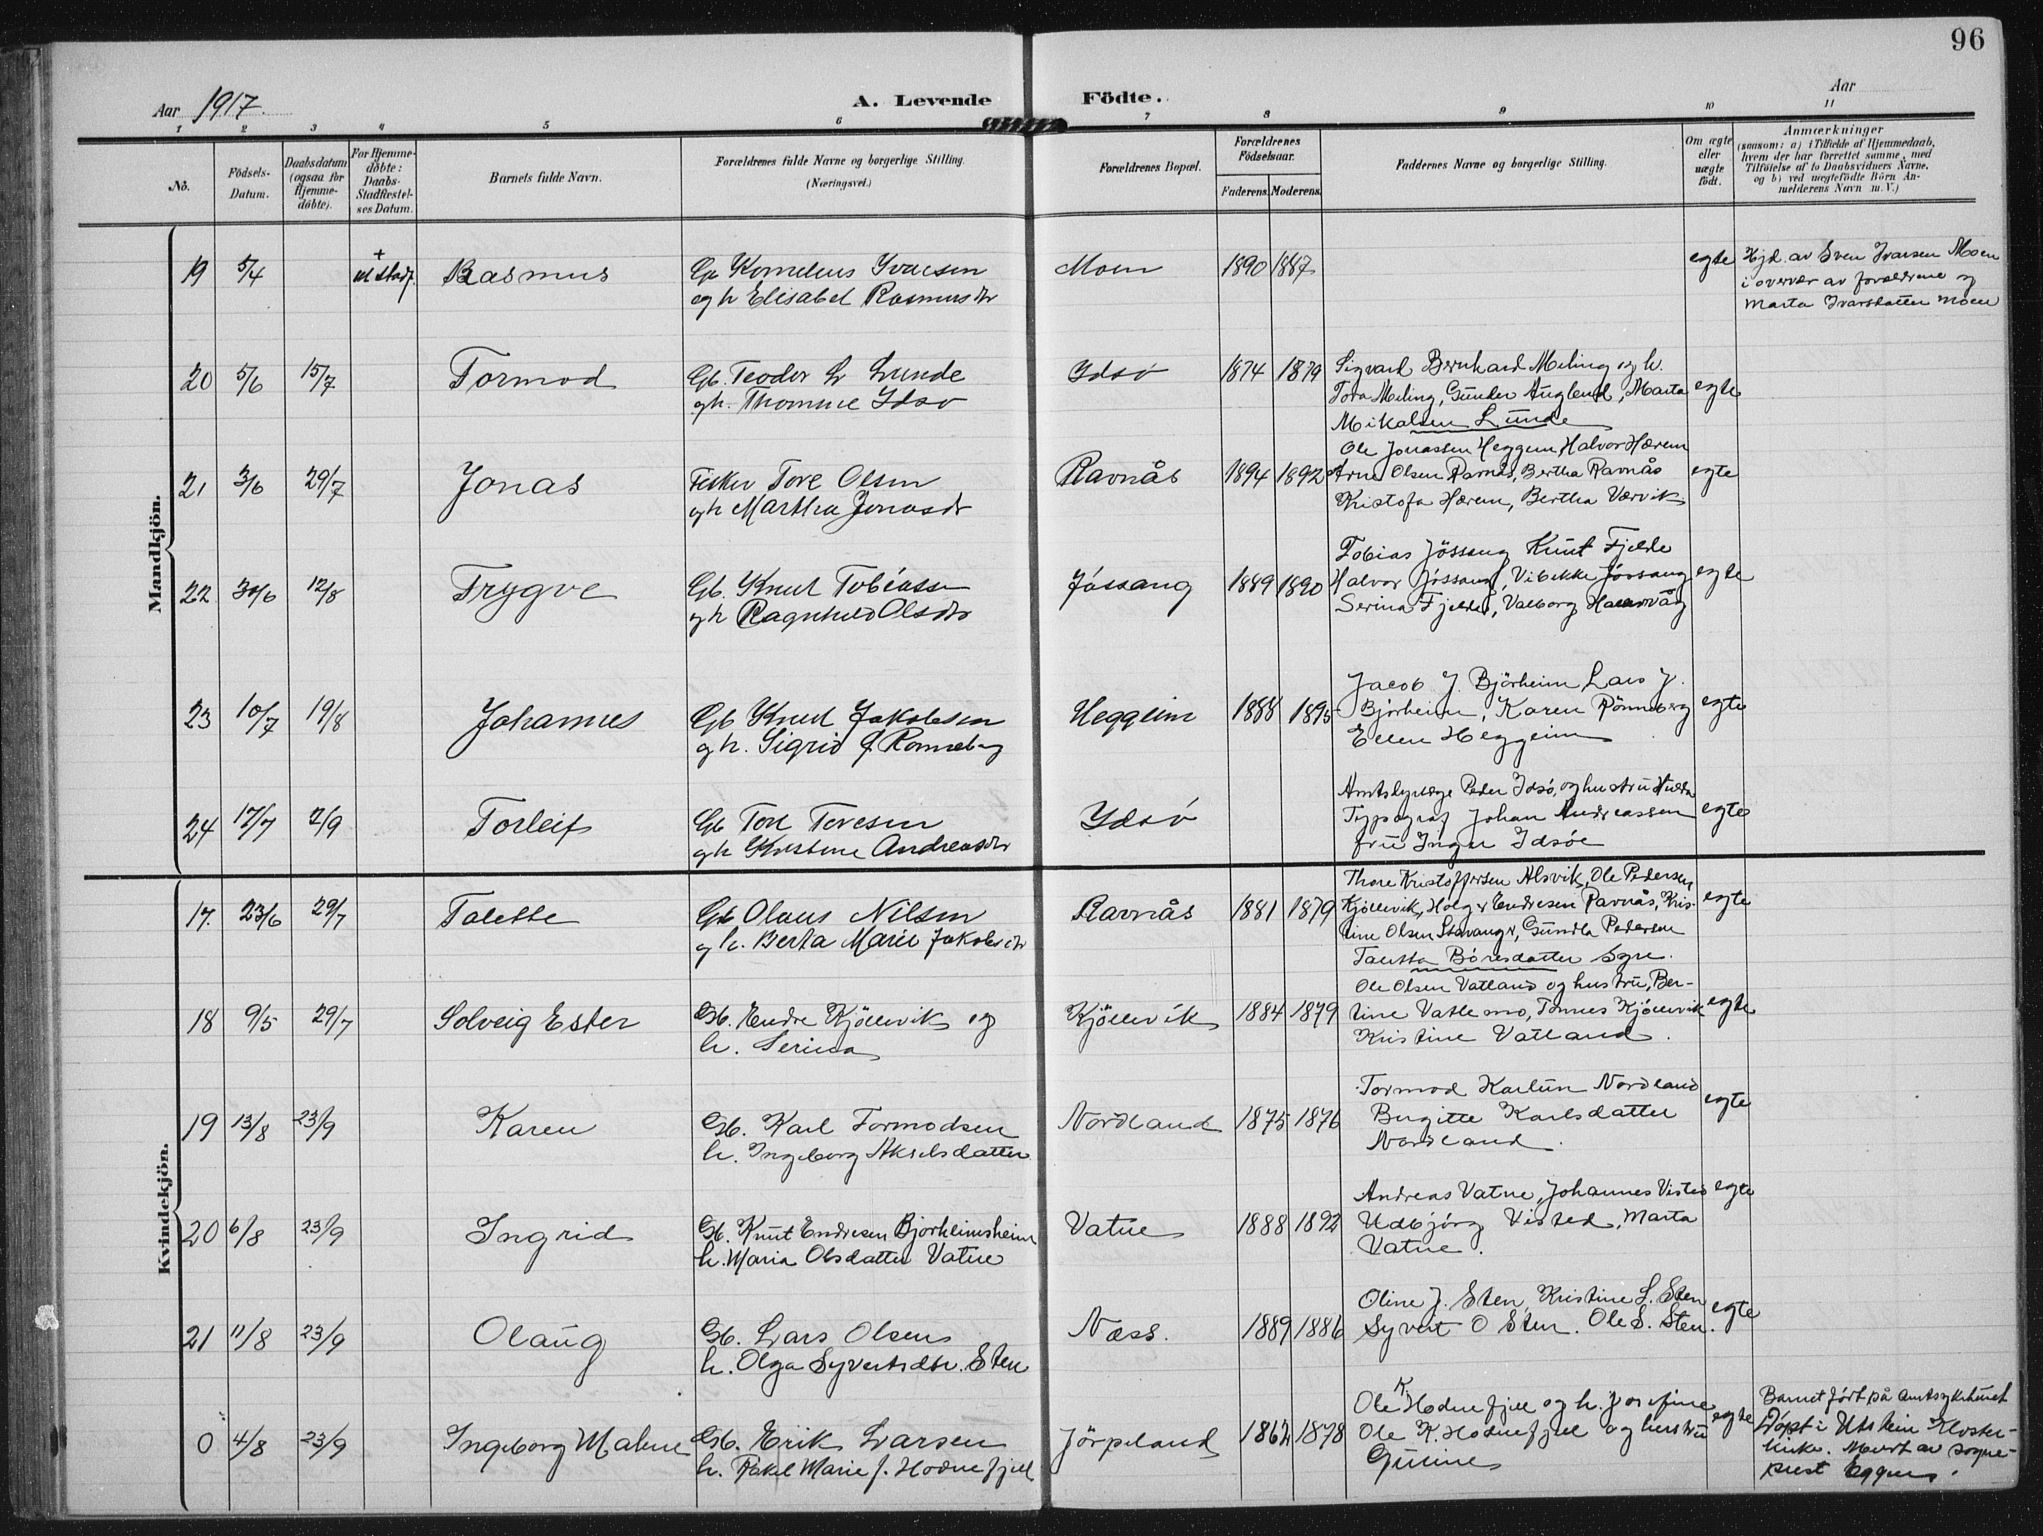 96
Aar 1917.
A. Levende Födte.
Aar
1 2 3 4 5 6 7 8 9 10 11
No.
Födsels-
Datum.
Daabsdatum
(ogsaa for
Hjemme-
döbte).
For Hjemme-
döbte:
Daabs-
Stadfæstel-
ses Datum.
Barnets fulde Navn.
Forældrenes fulde Navne og borgerlige Stilling.
(Næringsvei.)
Forældrenes Bopæl.
Forældrenes
Födselsaar.
Faderens. Moderens.
Faddernes Navne og borgerlige Stilling.
Om ægte
eller
uægte
födt.
Anmærkninger
(saasom: a) i Tilfælde af Hjemmedaab,
hvem der har forrettet samme, med
Tilföielse af to Daabsvidners Navne.
og b) ved uægtefödte Börn An-
melderens Navn m. V.)
Mandkjön.
19 5/4 + Rasmus
Kornelius Ivarsen
og h Elisabet Rasmusdtr
Moen 1890 1887 egte
Hjd. av Sven Ivarsen Moen
i overvær av forældrene og
Marta Ivarsdatter Moen
20 5/6 15/7 Tormod
Gb. Teodor L Lunde
og h. Thomine Idsö
Idsö 1874 1879
Sigvard Bernhard Meling og h.
Tora Meling, Gunder Auglend, Marta
Mikalsen Lunde
egte
21 3/6 29/7 Jonas
Fisker Tore Olsen
og h Martha Jonasdtr
Ravnås 1894 1892
Ole Jonassen Heggem, Halvor Hærem
Arne Olsen Ravnås, Bertha Ravnås
Kristofa Hærem, Bertha Værvik
egte
22 30/6 12/8 Trygve
Gb. Knut Tobiassen
og h Ragnhild Olsdtr
Jössang 1889 1890
Tobias Jössang Knut Fjelde
Halvor Jössang, Vibekke Jössang
Serina Fjelde, Valborg
egte
23 10/7 19/8 Johannes
Gb Knut Jakobsen
og h. Sigrid J. Ronneberg
Heggeim 1888 1895
Jacob J. Björheim Lars J.
Björheim, Karen Rönneberg
Ellen Heggeim
egte
24 17/7 2/9 Torleif
Gb Tore Toresen
og h Kristine Andreasdtr
Idsö
Amtslege Peder Idsö, og hustru Hulda
Typograf Johan Andreassen
fru Inger Idsöe
egte
Kvindekjön.
17. 23/6 29/7 Talette
Gb Olaus Nilsen
og h. Berta Marie Jakobsdtr
Ravnås 1881 1879
Thore Kristoffersen Alsvik, Ole Pedersen
Kjöllevik, Holger Endresen Ravnås, Kris-
tine Olsen Stavanger, Gunda Pedersen
Taletta Böresdatter Syre.
egte
18 9/5 29/7 Solveig Ester
Gb. Endre Kjöllevik og
h. Serina
Kjöllevik 1884 1879
Ole Olsen Vatland og hustru, Ber-
tine Vatlemo, Tönnes Kjöllevik
Kristine Vatland.
egte
19 13/8 23/9 Karen
Gb. Karl Tormodsen
h. Ingeborg Akselsdatter
Nordland 1875 1876
Tormod Karlsen Nordland
Birgitte Karlsdatter
Nordland.
egte
20 6/8 23/9 Ingrid
Gb. Knut Endresen Bjorheimsheim
h. Maria Olsdatter Vatne
Vatne 1888 1892
Andreas Vatne, Johannes Visted
Udbjörg Visted, Marta
Vatne.
egte
21 11/8 23/9 Olaug
Gb. Lars Olsens
h. Olga Syvertsdtr. Sten
Næss. 1889 1886
Oline J. Sten, Kristine L. Sten
Syvert O Sten. Ole S. Sten.
egte
0 4/8 23/9 Ingeborg Malene
Gb. Erik Larsen
h. Rakel Marie J. Hodnefjell
Jörpeland 1862 1878
Ole K Hodnefjell og h. Josefine
Ole K. Hodnefjell og hustru
Gurine
egte
Barnet födt på Amtssykehuset
Döpt i Utstein Kloster-
kirke. Meldt av sogne-
prest